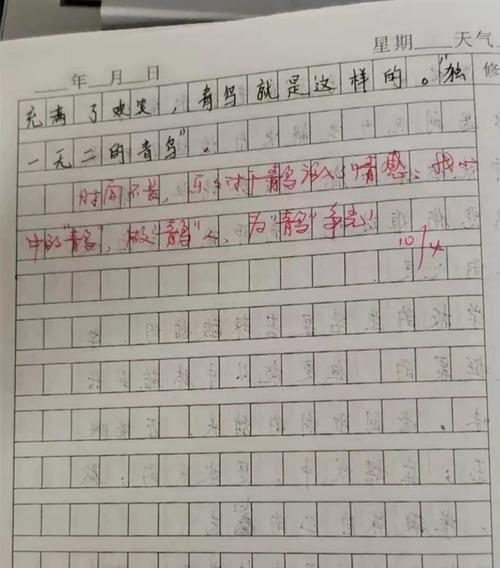 星期 天气
年 月 日
修
充满了欢笑，青鸟就是这样的。“独
一无二的青鸟”。
时间不长，你对“青鸟”注入了情感，找心
中的“青鸟”，做“青鸟”人，为“青鸟”争光！
10/4